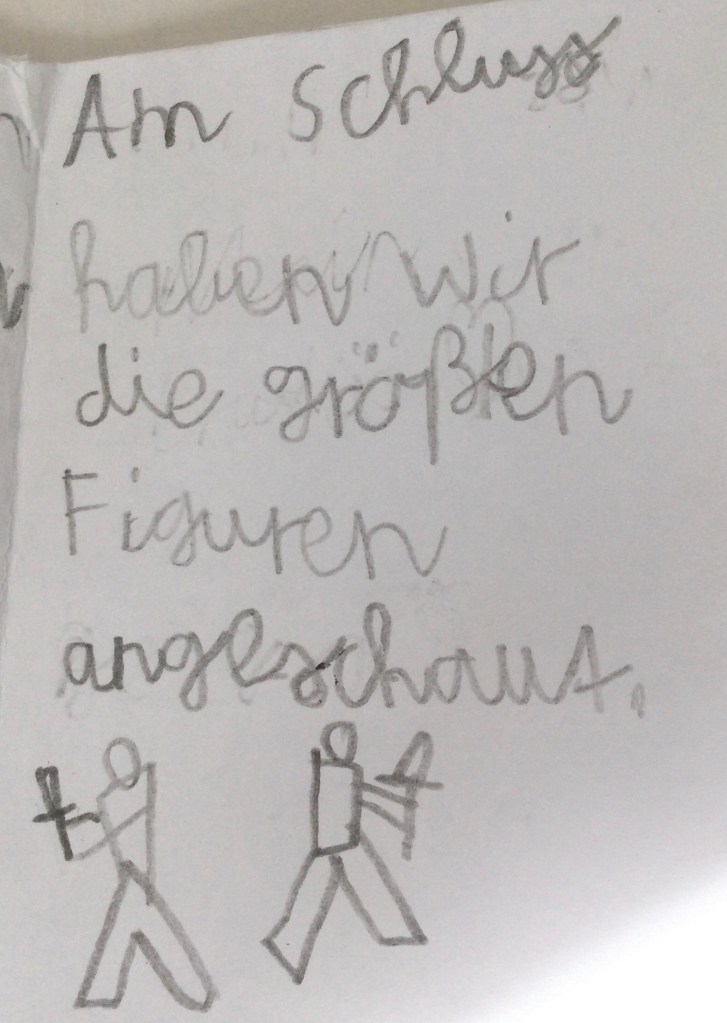 Am Schluss
haben wir
die größten
Figuren
angeschaut.